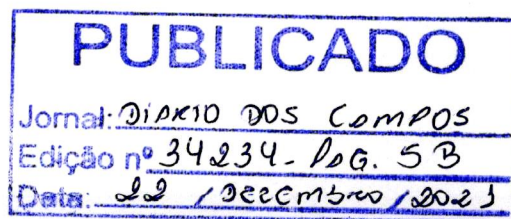 PUBLICADO
Jornal: DiARIO DOS CAMPOS
Edição nº 34234 - PAG. 5B
Data: 22 / DEZEMBRO / 2021